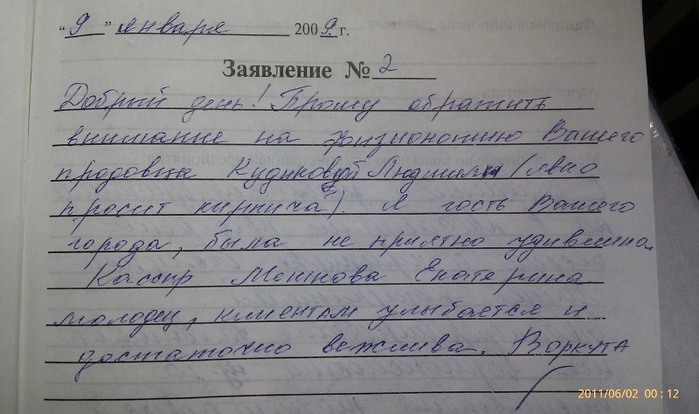 "9" января 2009 г.
Заявление № 2
Добрый день! Прошу обратить
внимание на физиономию Вашего
продавца Кудиковой Людмилы (явно
просит кирпича). Я гость Вашего
города, была не приятно удивлена.
Кассир Мешкова Екатерина
молодец, клиентам улыбается и
достаточно вежлива. Воркута
2011/06/02 00:12